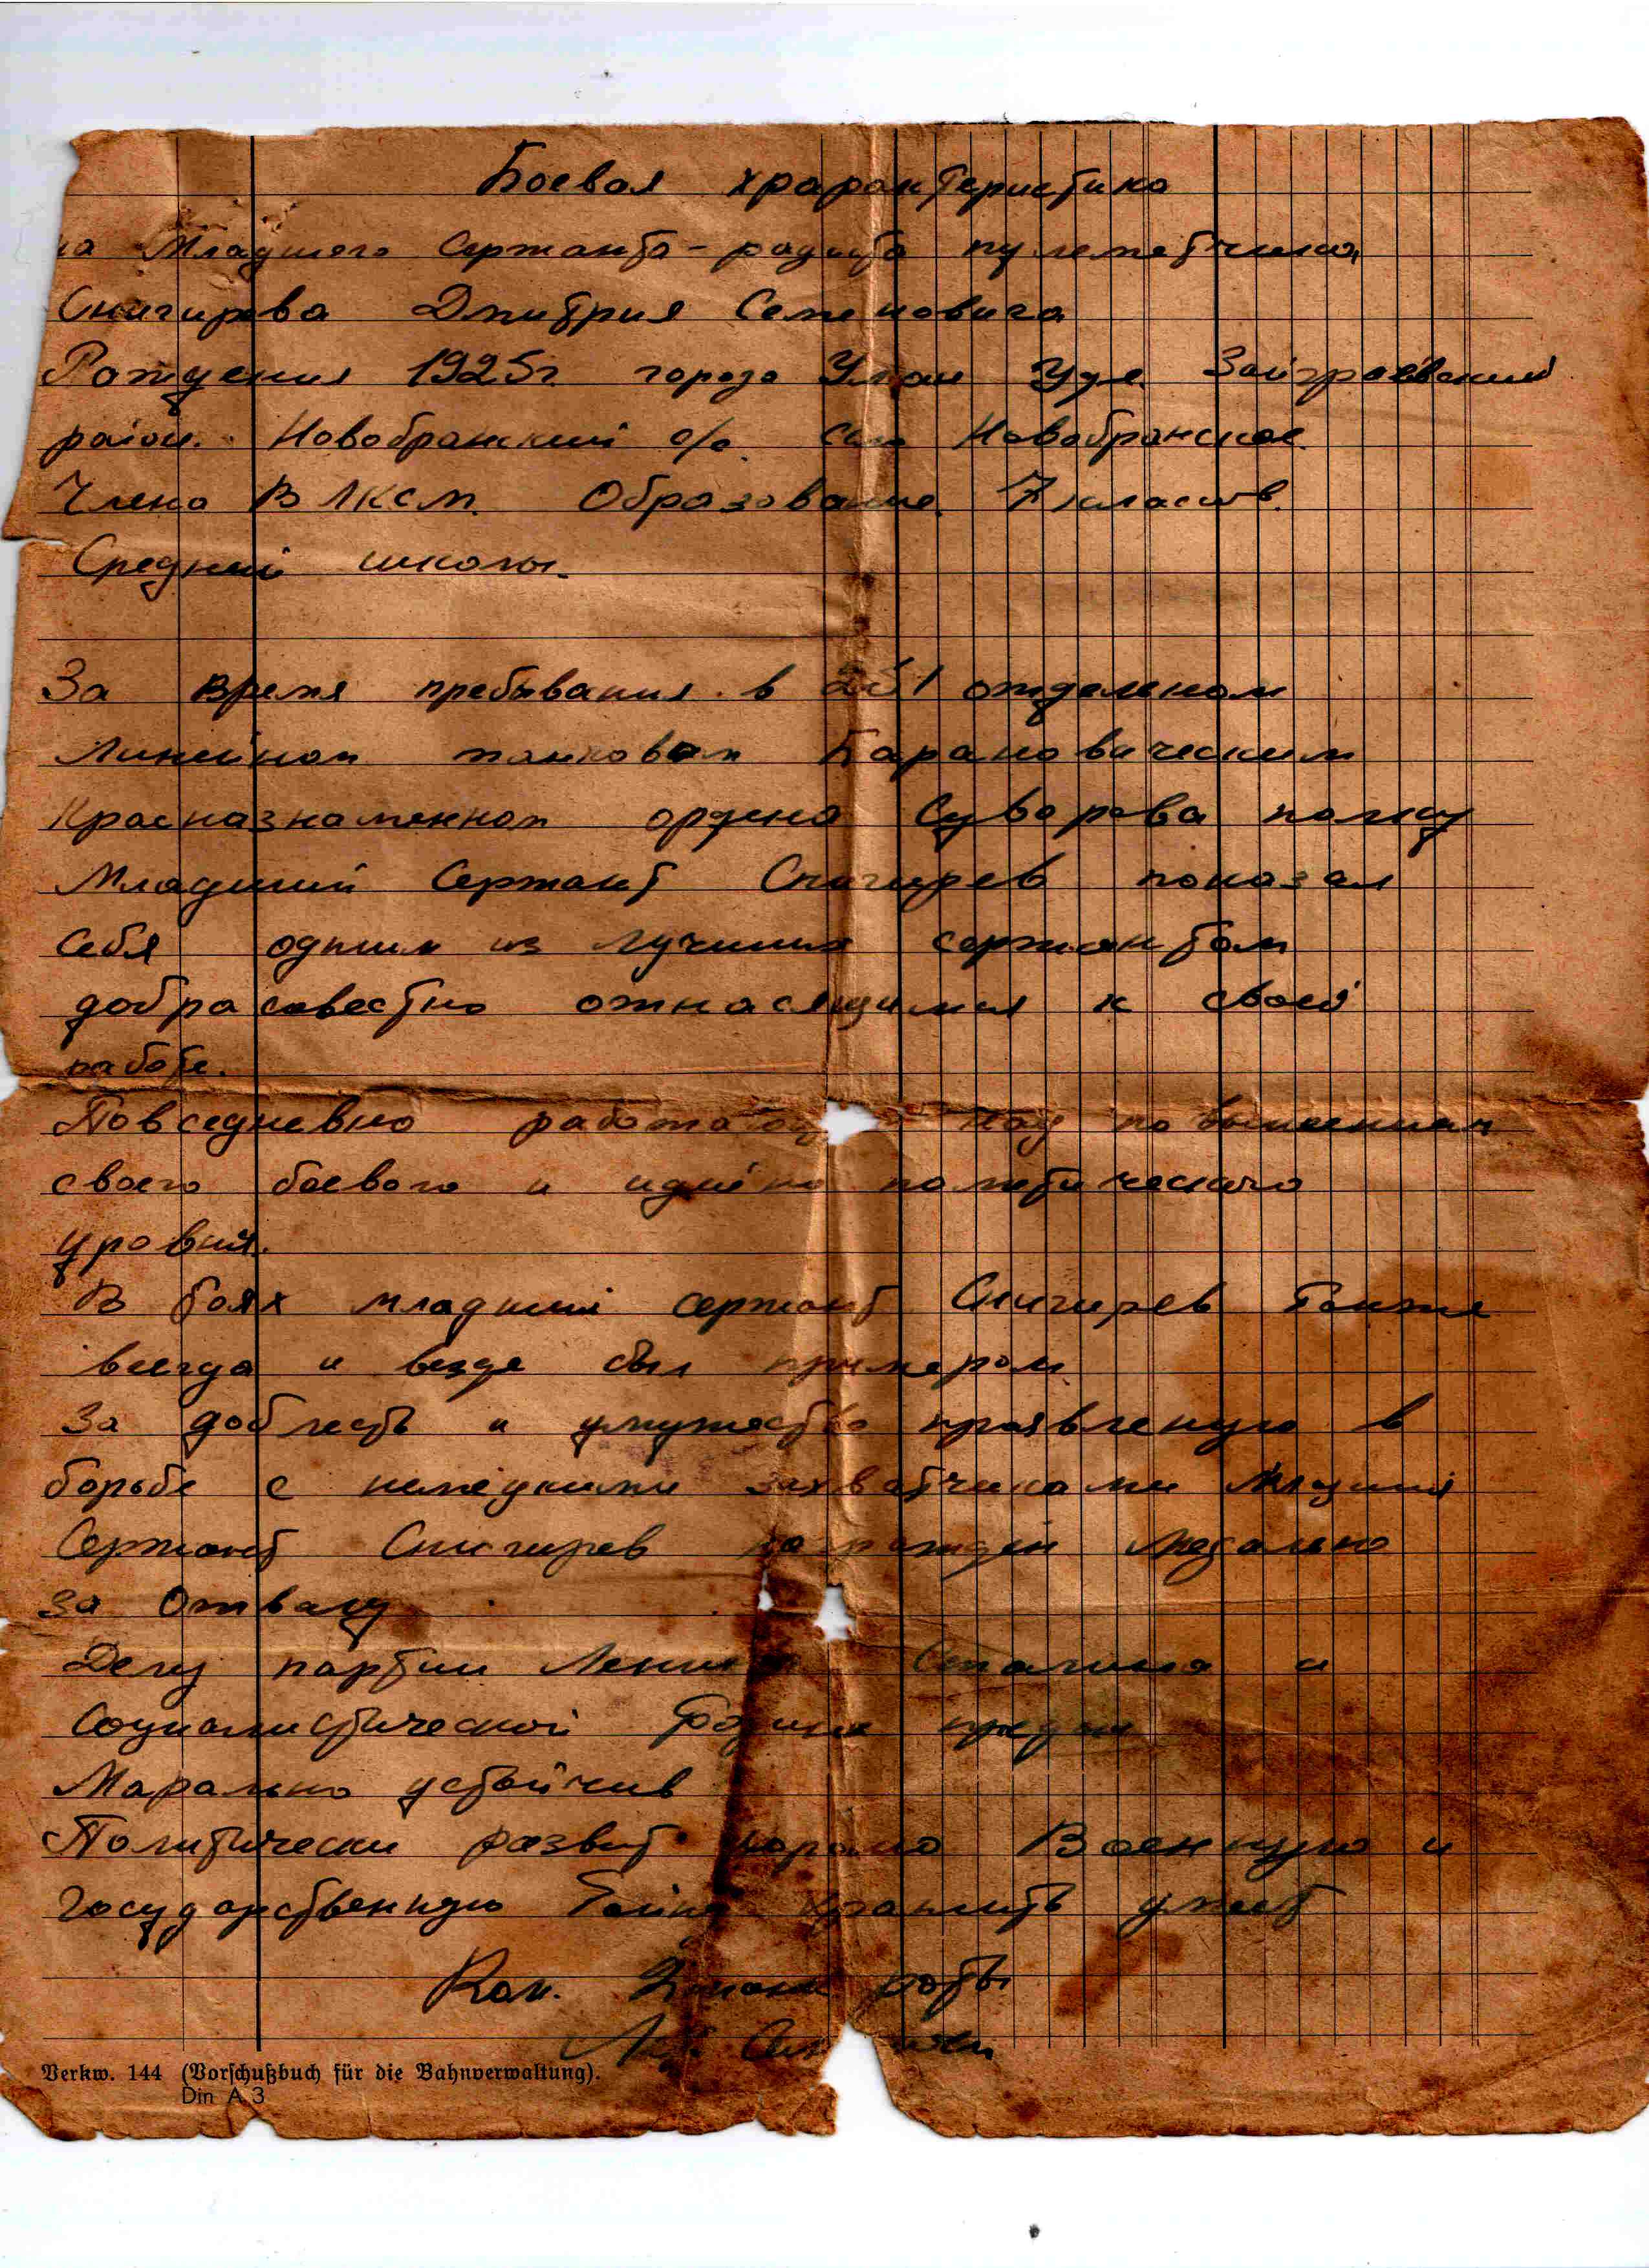 Боевая храрактеристика
на Младшего Сержанта - радиста пулеметчика
Снигирева Дмитрия Семеновича
Рождения 1925г. города Улан Удэ. Заиграевский
район. Новобрянский с/с. село Новобрянское.
Члена ВЛКСМ. Образование. 7 класств.
Средней школы.
За время пребывания в 251 отделеном
Линейном танковом Барановическим
Красназнаменном ордена Суворова полку
Младший Сержант Снигирев показал
себя одним из лучших сержантом
добрасовестно отнасящимся к своей
работе.
Повседневно работа над повышением
своего боевого и идейно политического
уровня.
В боях младший сержант Снигирев также
всегда и везде был примером
За доблесть и мужество проявленую в
борьбе с немецкими захватчиками Младший
Сержант Снигирев награжден медалью
за Отвагу
Делу партии Ленина Сталина и
Социалистической Родине предан
Марально устойчив
Политически развит хорошо Военную и
государственную тайну хранить умеет
Ком. роты
Verkw. 144 (Vorschußbuch für die Bahnverwaltung).
Din A 3